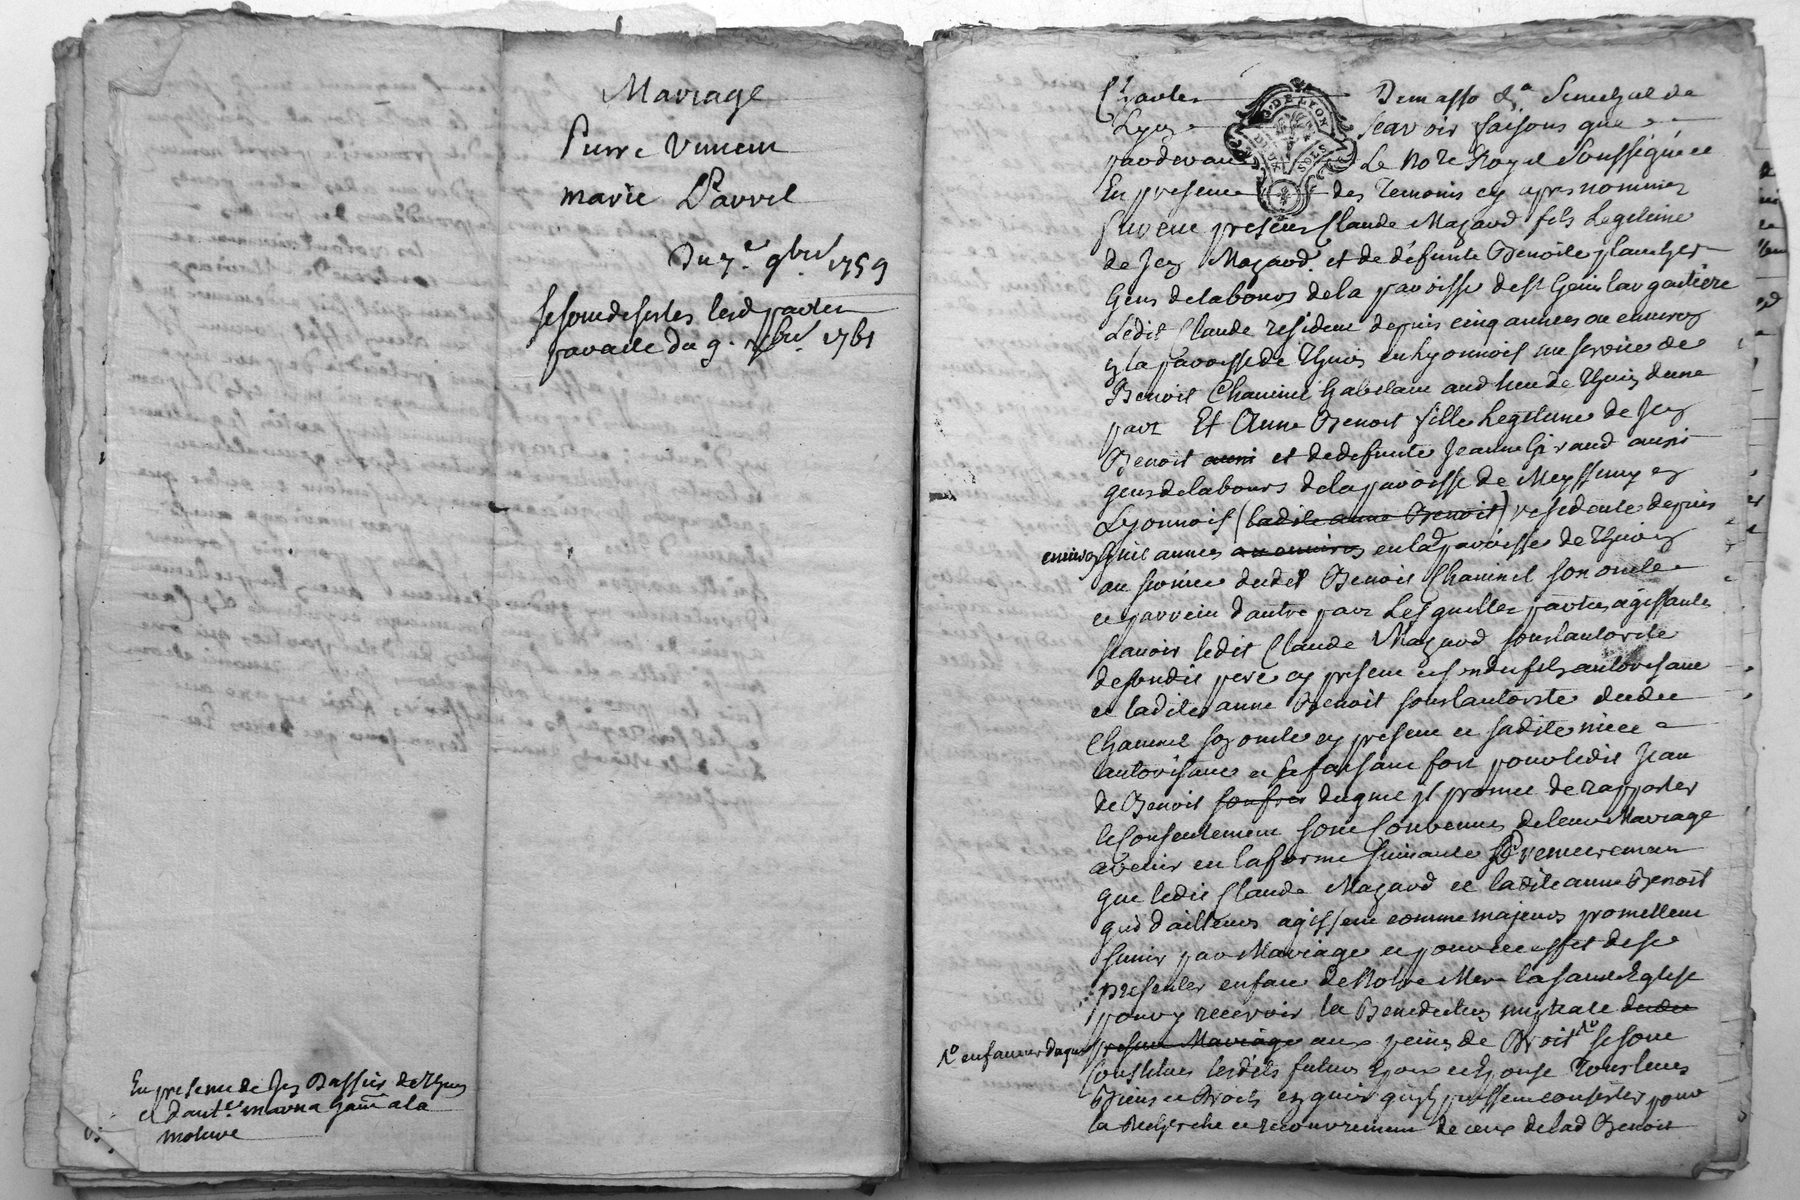 Mariage
Pierre Vinson
marie Darvel
Du 7.e 9bre 1759
se sont desistés lesd parties
par acte du 9. 1761
En presence de Jea Dassier de Thurs
et d'ant.
moture
Charles Demasso &a Senechal de
Lyon scavoir faisons que
pardevant Le No.re Royal soussigné et
En presence des Temoins cy apres nommés
furent presens Claude Mazard fils Legitime
de Jea Mazard et de défunte Benoite planchet
Gens de labours de la paroisse de st Genis largentiere
Ledit Claude resident depuis cinq années ou environ
en la paroisse de en Lyonnois au service de
Benoit Chauvinel habitant aud lieu de d'une
part Et Anne Benoit fille Legitime de Jea
Benoit aussi et de defunte Jeanne Giraud aussi
gens de labours de la paroisse de Meyssimy en
Lyonnois (ladite anne Benoit) residente depuis
environ huit années ou environ en lad paroisse de
au service dudit Benoit Chauvinel son oncle
et parrein d'autre part Lesquelles parties agissantes
scavoir ledit Claude Mazard sous l'autorité
de sondit pere cy present et sondit fils autorisant
et ladite anne Benoit sous l'autorité dudit
Chauvinel son oncle cy present et sadite niece
autorisant et se faisant fort pour ledit Jean
de Benoit duquel il promet de rapporter
le consentement sont convenus de leur Mariage
a venir en la forme suivante Premierement
que ledit Claude Mazard et ladite anne Benoit
qui d'ailleurs agissent comme majeurs promettent
s'unir par Mariage et pour cet effet de se
presenter en face de Notre Mere la sainte Eglise
pour y recevoir la Benediction nuptiale dudit
present Mariage aux peines de Droit se sont
en faveur duquel
constitués lesdits futurs Epoux et Epouse Tous leurs
Biens et Droits en quoi qu'ils puissent consister pour
la Recherche et recouvrement de ceux de lad Benoit